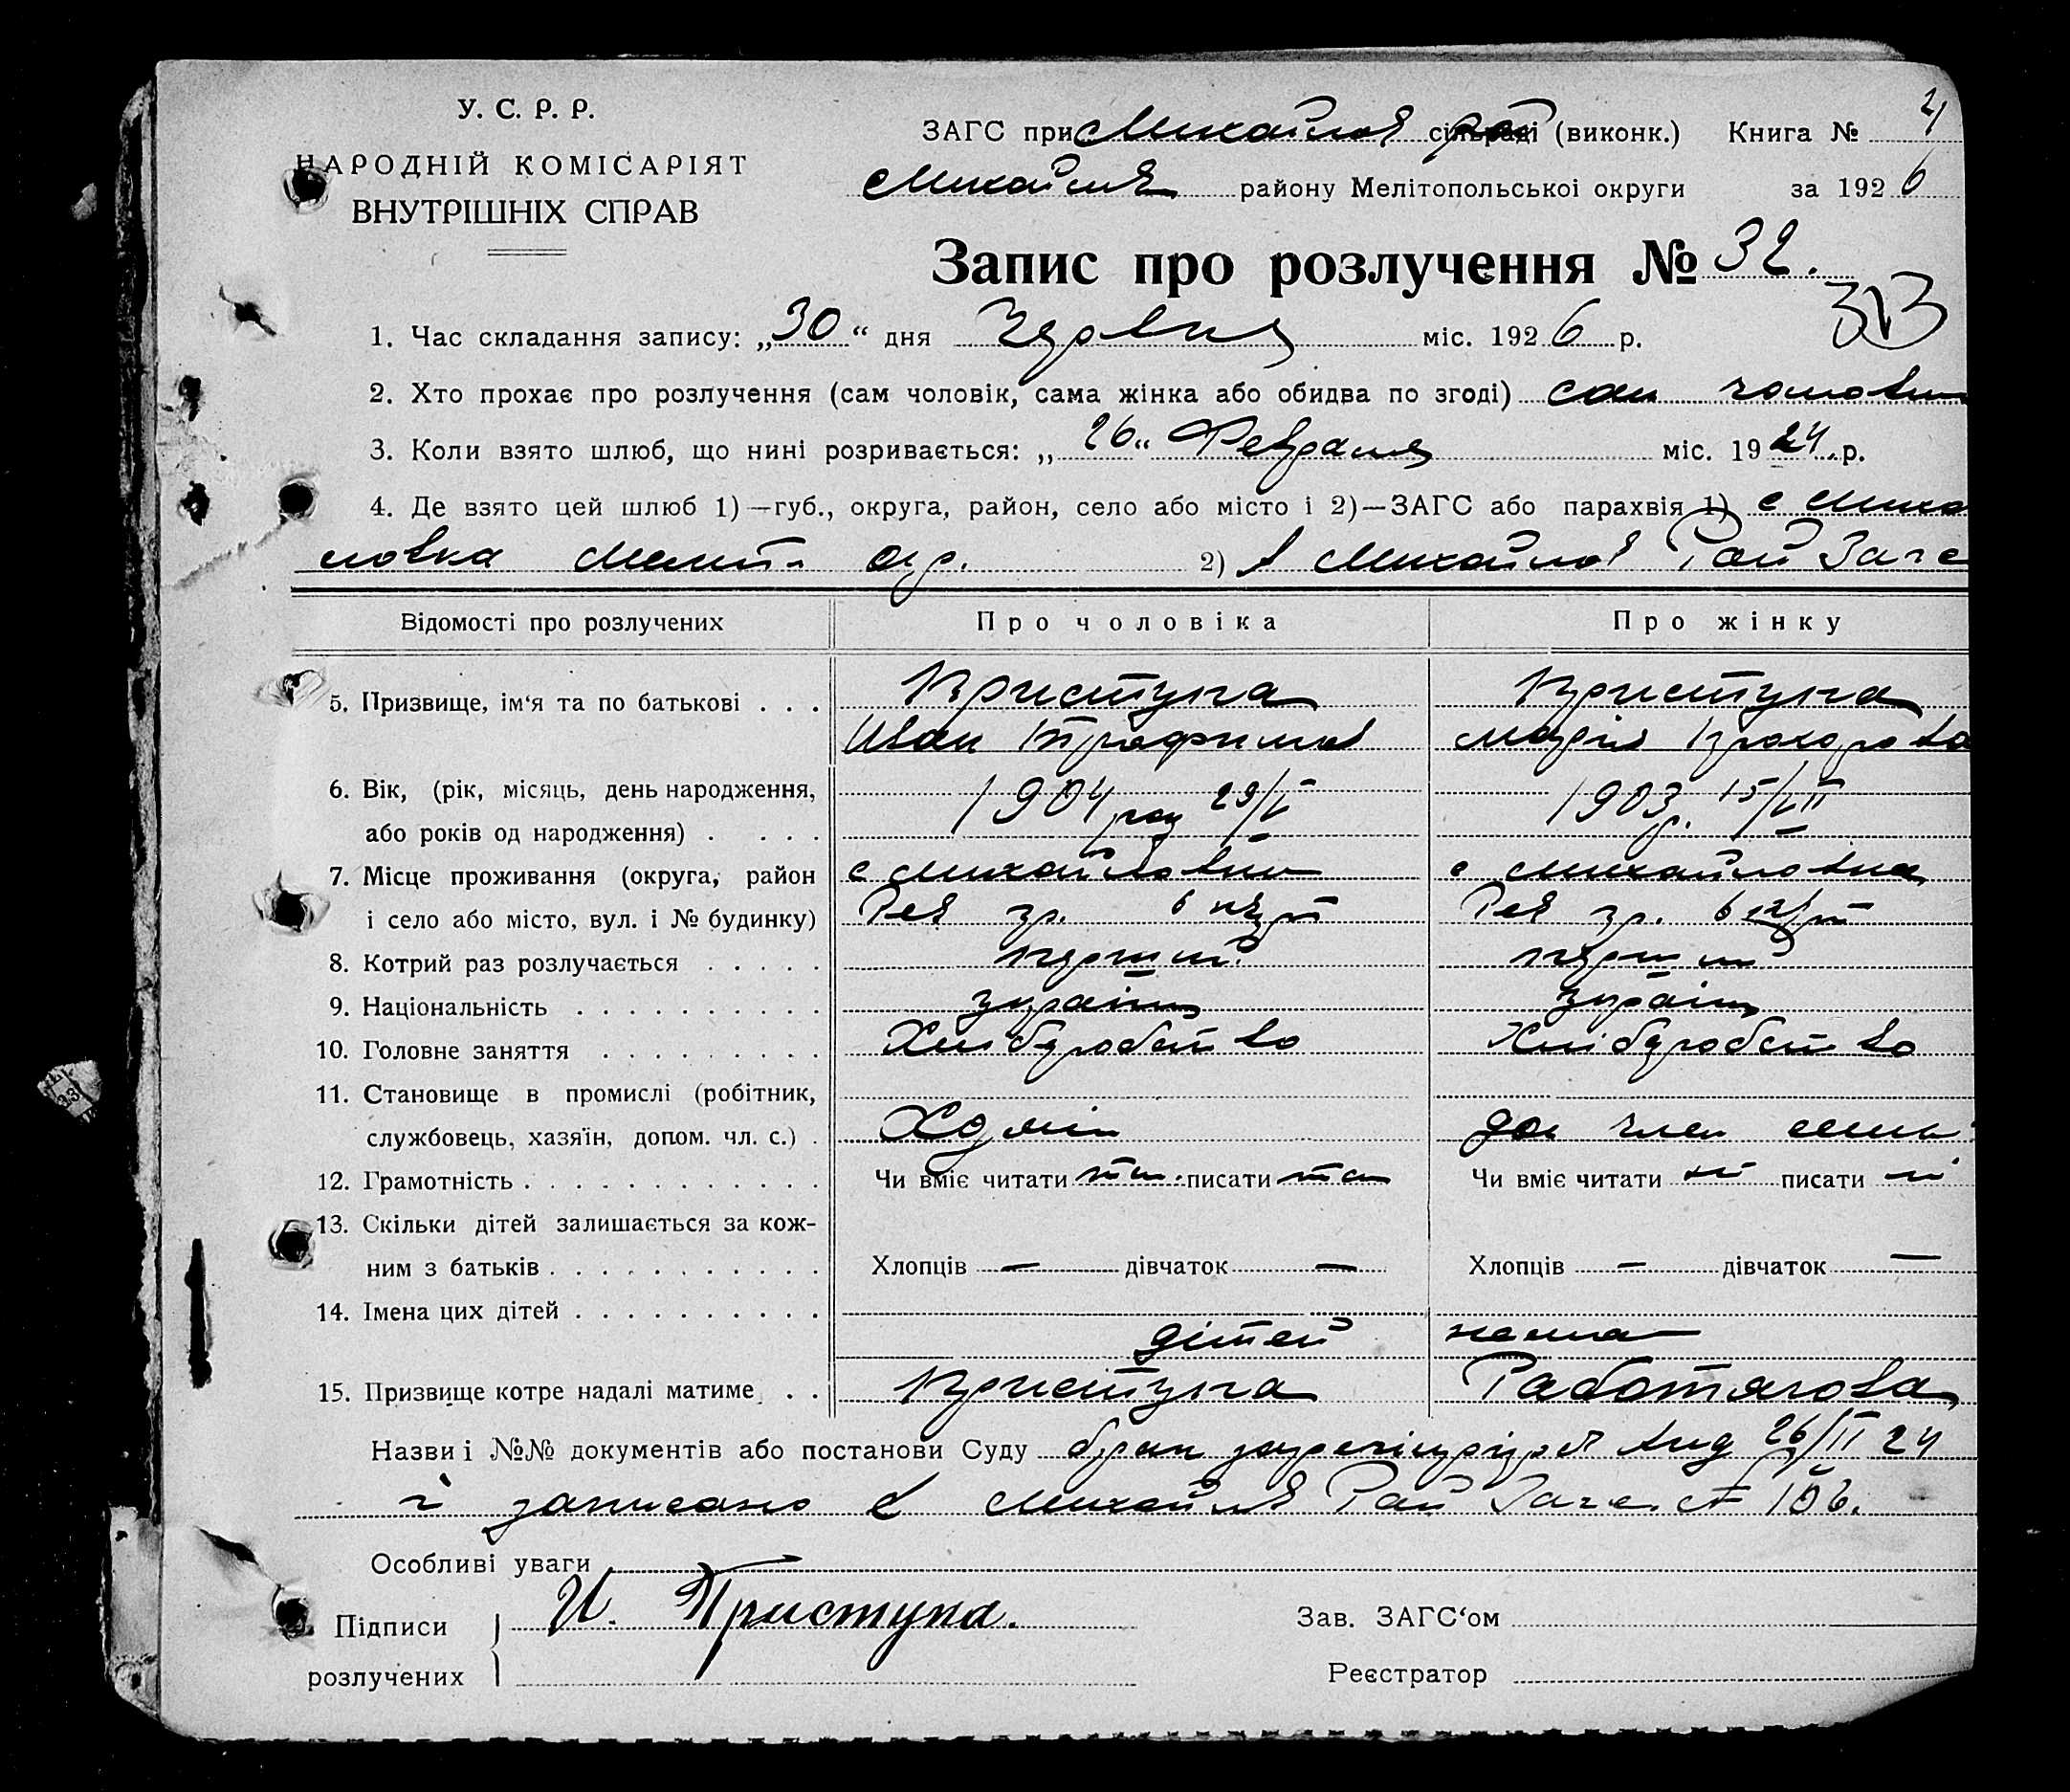 У. С. Р. Р.
НАРОДНІЙ КОМІСАРІЯТ
ВНУТРІШНІХ СПРАВ
ЗАГС при Михайлов сільраді (виконк.) Книга № 4
Михайлів району Мелітопольськоі округи за 1926
Запис про розлучення № 32.
1. Час складання запису: „30“ дня Червня міс. 1926 р.
2. Хто прохає про розлучення (сам чоловік, сама жінка або обидва по згоді) сам чоловик
3. Коли взято шлюб, що нині розривається: „26„ Февраля міс. 1924 р.
4. Де взято цей шлюб 1)—губ., округа, район, село або місто і 2)—ЗАГС або парахвія 1) с Михай
ловка Меліт. окр. 2) в Михайлов Рай Загс
Відомості про розлучених Про чоловіка Про жінку
5. Призвище, ім‘я та по батькові . . . Приступа Приступа
Иван Трофимов Марія Прохорова
6. Вік, (рік, місяць, день народження,
або років од народження) . . . . 1904 год 29/V 1903 р. 15/VII
7. Місце проживання (округа, район с Михайловки с Михайловка
і село або місто, вул. і № будинку) Рев гр. 6 Рев гр. 6
8. Котрий раз розлучається . . . . . перший перший
9. Національність . . . . . . . . . . україн україн
10. Головне заняття . . . . . . . . . Хлібуробство Хлібуробство
11. Становище в промислі (робітник,
службовець, хазяїн, допом. чл. с.) . доп член семьі
12. Грамотність . . . . . . . . . . . . Чи вміє читати так писати так Чи вміє читати ні писати ні
13. Скільки дітей залишається за кож-
ним з батьків . . . . . . . . . . . Хлопців — дівчаток — Хлопців — дівчаток —
14. Імена цих дітей . . . . . . . . . .
дітей нема
15. Призвище котре надалі матиме . . Приступа Работягова
Назви і №№ документів або постанови Суду брак від 26/II 24
і записано в Михайлів Рай Загс ст 106.
Особливі уваги
Підписи И. Приступа. Зав. ЗАГС‘ом
розлучених Реєстратор